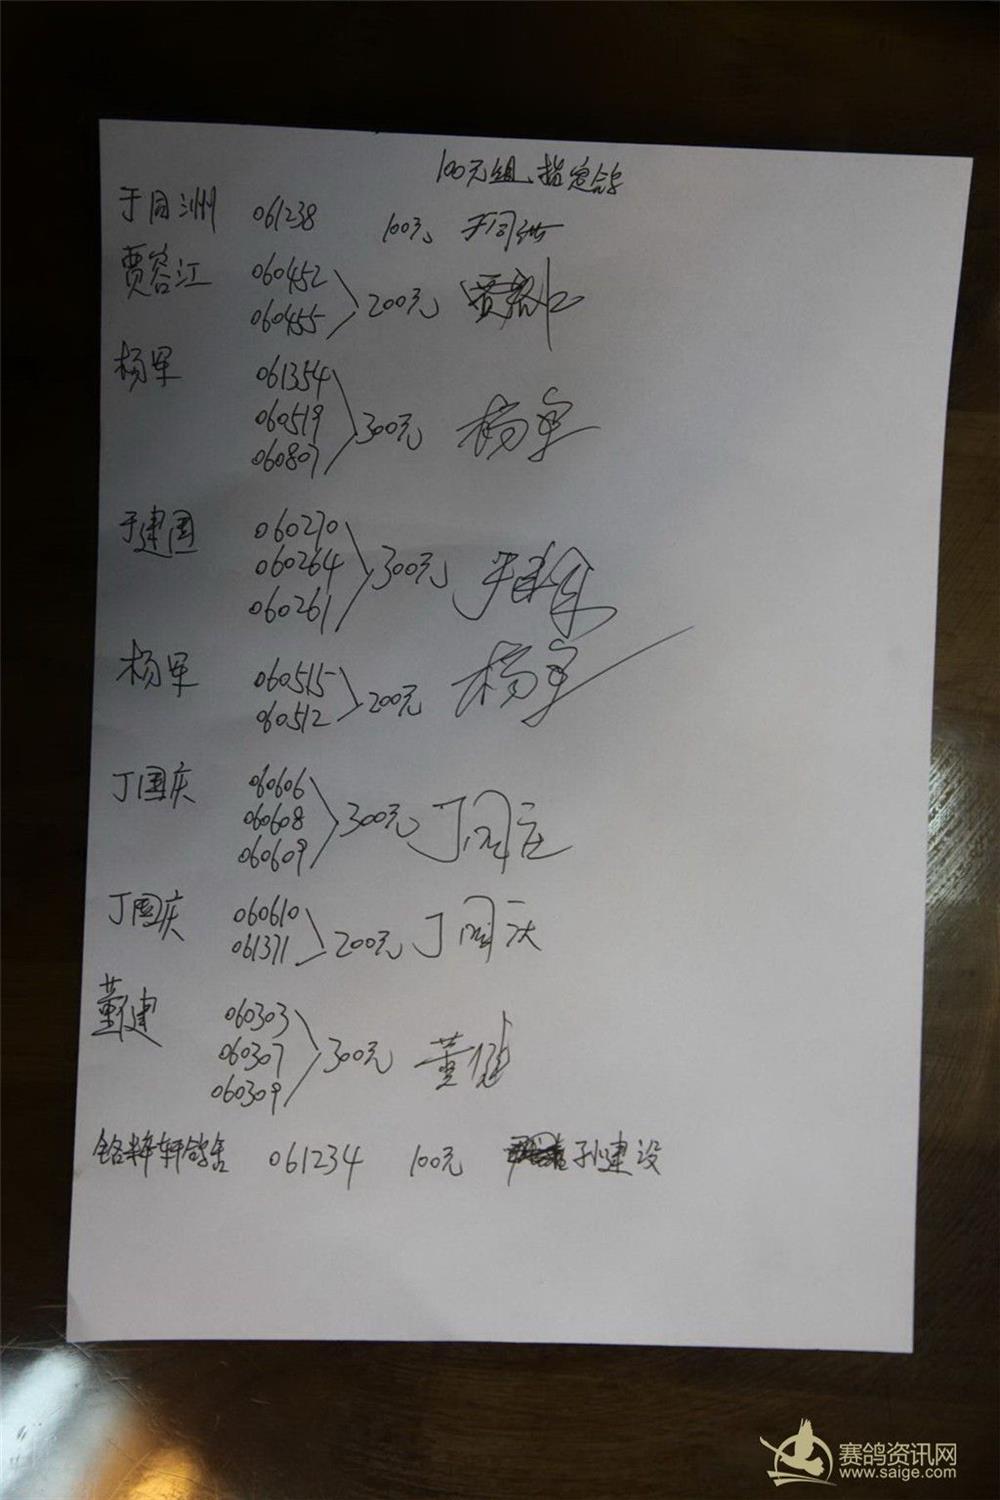 100元组、指定鸽
于同洲 061238 100元 于同洲
贾容江 060452 200元
060455
杨军 061354
060519 300元 杨军
060807
于建国 060270
060264 300元
060261
杨军 060515 200元 杨军
060512
丁国庆 060606
060608 300元 丁国庆
060609
丁国庆 060610
061371 200元 丁国庆
董健 060303
060307 300元 董健
060309
铭粹轩鸽舍 061234 100元 孙建设
赛鸽资讯网
www.saige.com